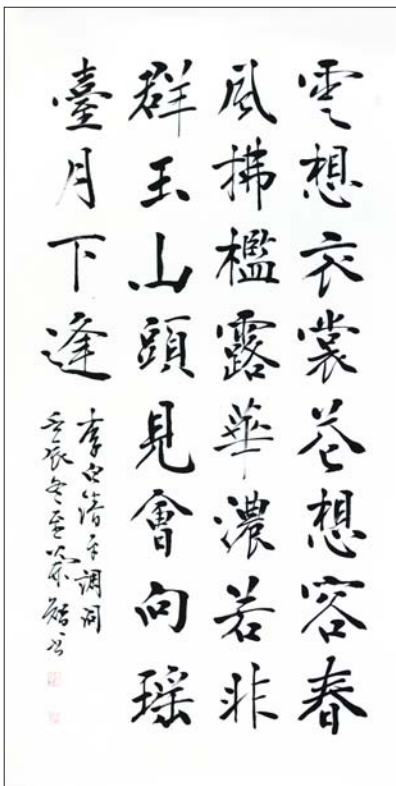 雲想衣裳花想容春
風拂檻露華濃若非
群玉山頭見會向瑶
臺月下逢
李白清平調詞
壬辰冬至